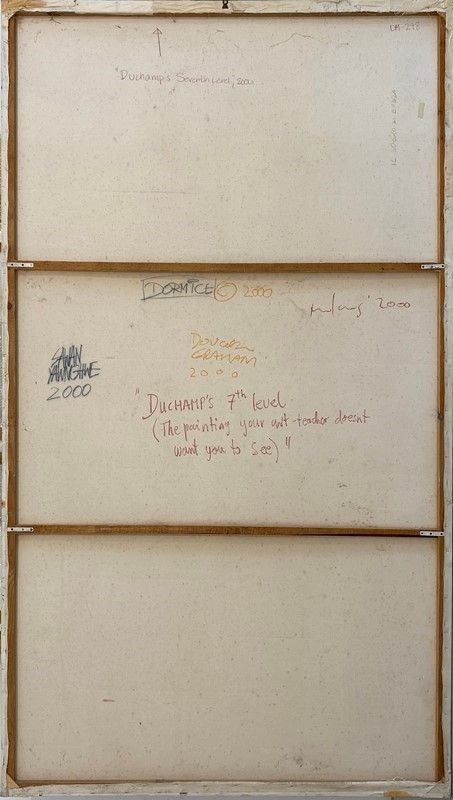 UM-248
Duchamp's Seventh Level, 2000
DORMICE © 2000
2000
DOUGLAS
GRAHAM
2000
SAWAN
YAWNGHWE
2000
"DUCHAMP'S 7th level
(The painting your art-teacher doesnt
want you to see)"